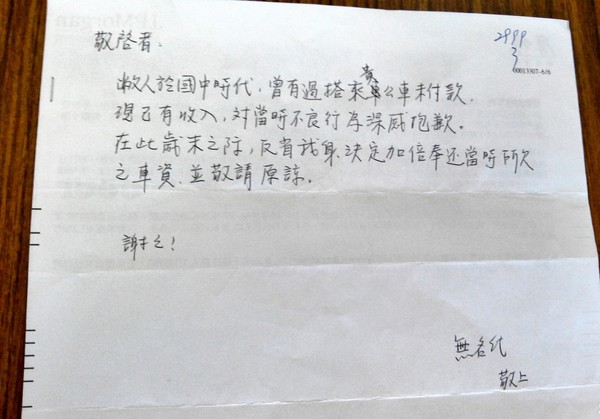 敬啓者:
2999
3
00013307-6/6
敝人於國中時代,曾有過搭乘貴公車未付款.
現已有收入,對當時不良行為深感抱歉。
在此歲末之際,反省我身,決定加倍奉还當時所欠
之車資.並敬請原諒。
謝
無名氏
敬上